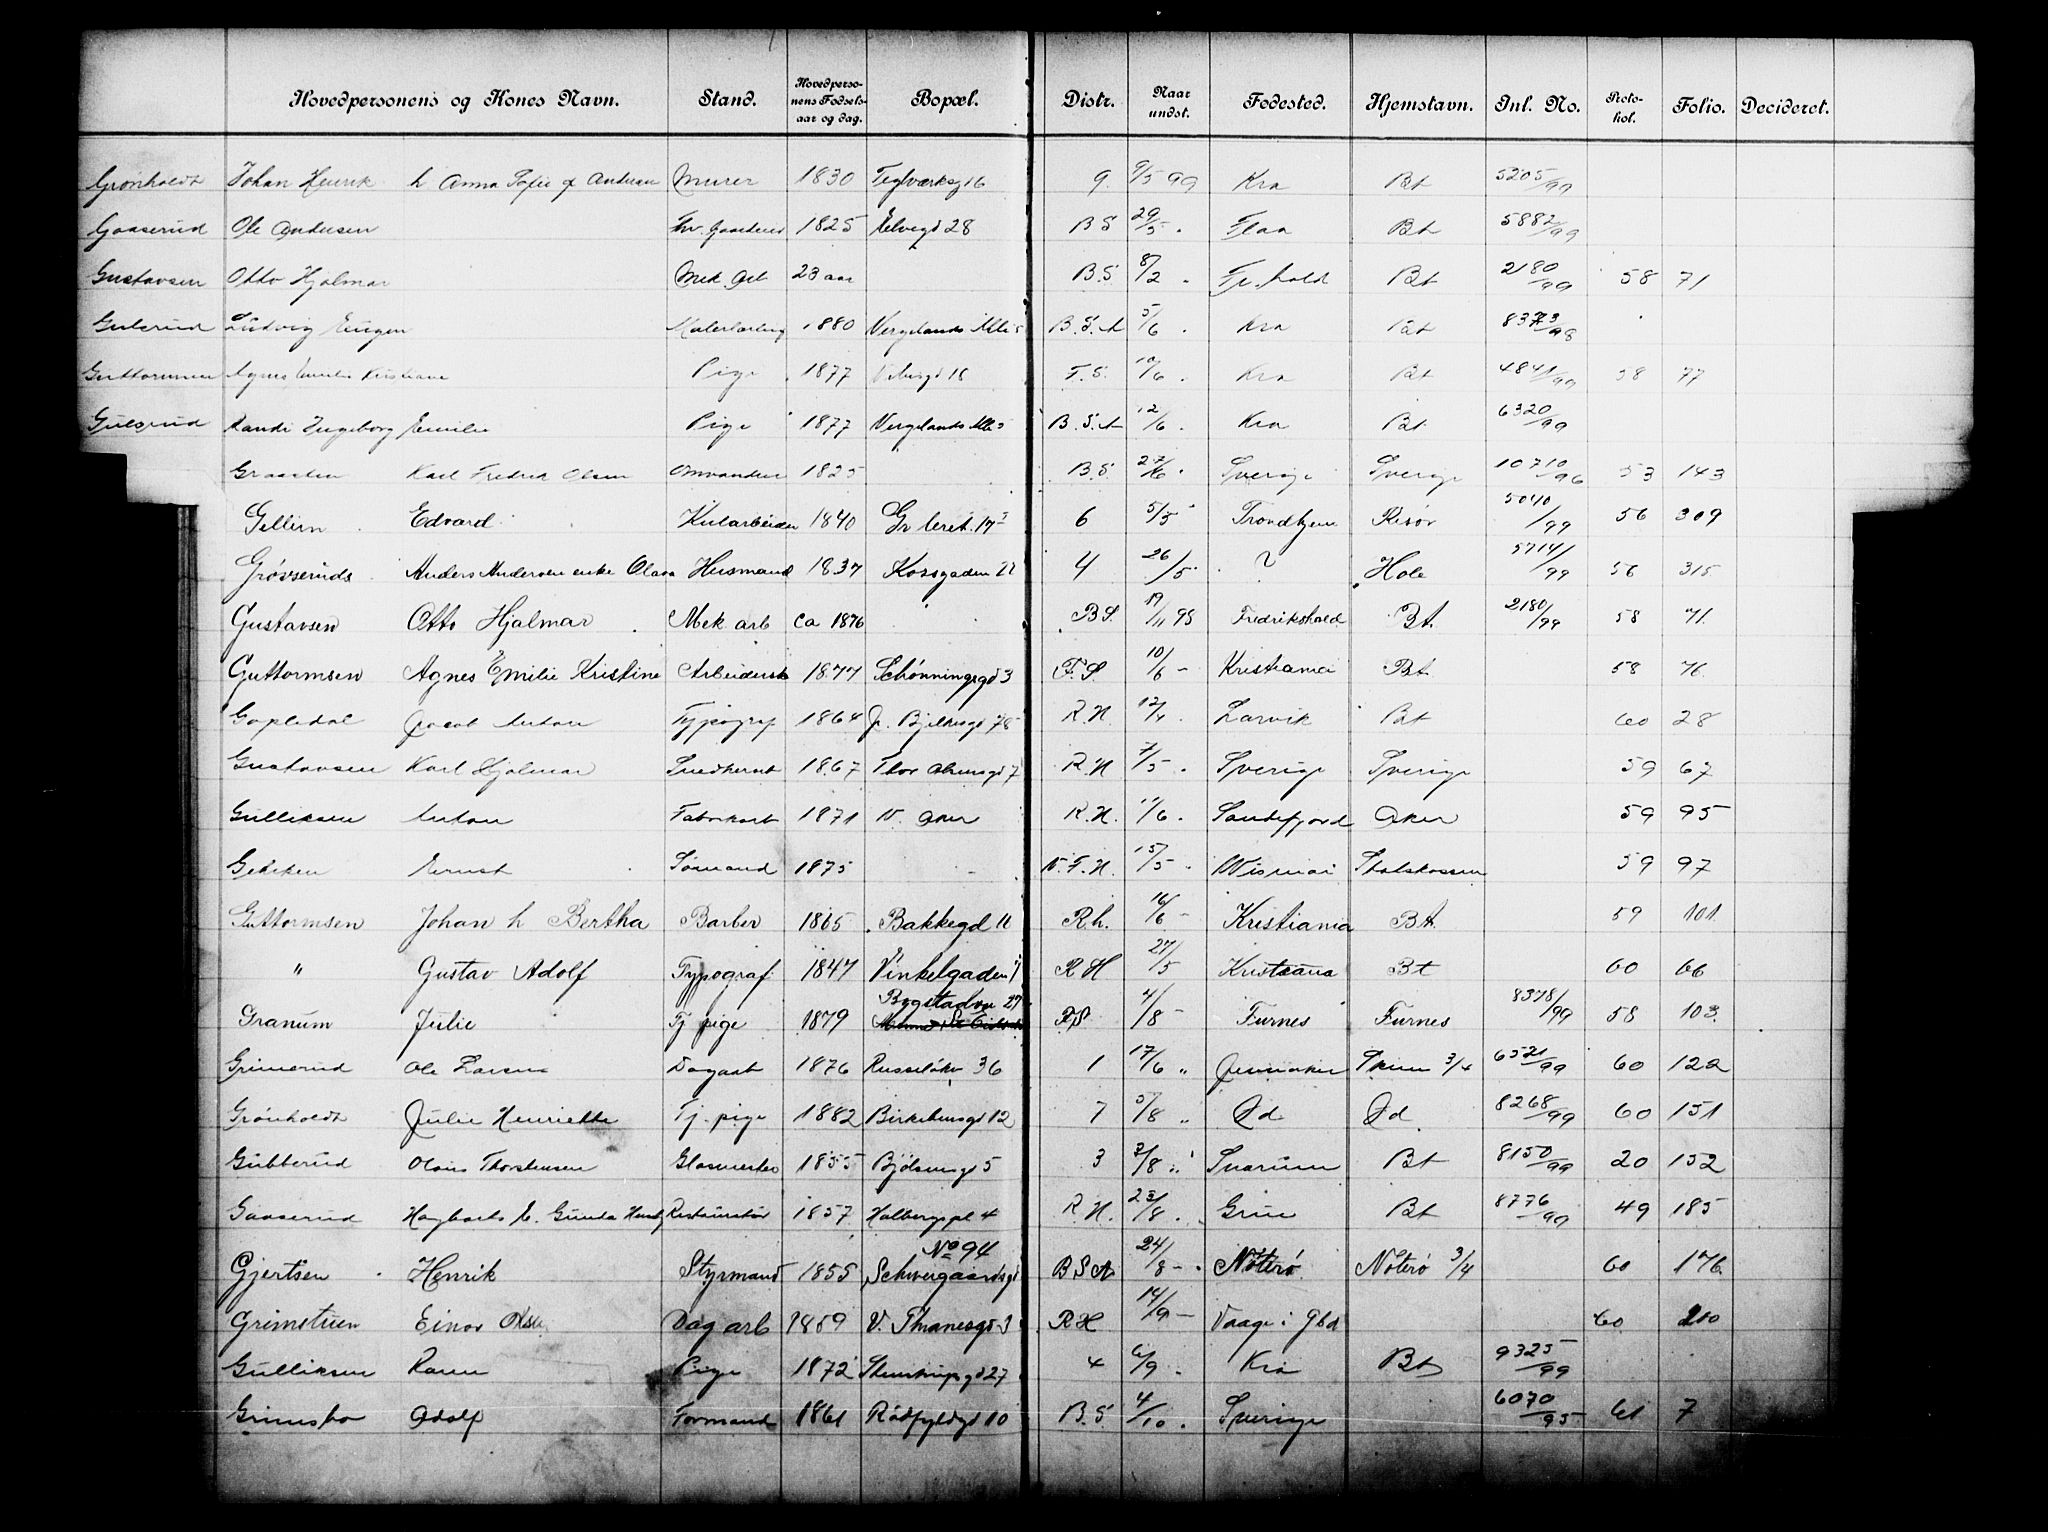 Hovedpersonens og Kones Navn. Stand. Hovedpersonens Fødselsaar og dag. Bopæl. Distr. Naar undst. Fødested. Hjemstavn. Jnl. No. Protokol. Folio. Decideret.
Grønholdt Johan Henrik h Anna Sofie f Andersen Murer 1830 Teglværksg 16 9. 9/5 99 Kra Bt 5205/99
Gaaserud Ole Andersen Fhv. Gaardeier 1825 Elvegd 28 B S 29/5 . Flaa Bt 5882/99
Gustavsen Otto Hjalmar Mek. Arb 23 aar B.S 8/2 . Fr.hald Bt 2180/99 58 71
Gulsrud Ludvig Eugen Malerlærling 1880 Vergelands Alle 5 B.S.A 5/6 . Kra Bt 8373/98
Guttormsen Agnes Emilie Kristiane Pige 1877 Vibesgd 18 F.S. 10/6 . Kra Bt 4841/99 58 77
Gulsrud Randi Ingeborg Emilie Pige 1877 Vergelands Alle 5 B.S.A 12/6 . Kra Bt. 6320/99
Graasten Karl Fredrik Olsen Omvandrer 1825 B.S. 27/6 . Sverige Sverige 10710/96 53 143
Gellein Edvard Kularbeider 1840 Gr leret. 17 6 5/5 Trondhjem Risör 5040/99 56 309
Grövseruds Anders Andersen enke Olava Husmand 1837 Korsgaden 22 4 26/5 ? Hole 5714/99 56 315
Gustavsen Otto Hjalmar Mek arb ca 1876 B S. 19/11 95 Fredrikshald Bt. 2180/99 58 71.
Guttormsen Agnes Emilie Kristine Arbeiderske 1877 Schönningsgd 3 F. S. 10/6 - Kristiania Bt 58 76.
Gopledal Jacob Anton Typograf 1864 J. Bjelkesgd 78 R.H. 12/4 . Larvik Bt 60 28
Gustavsen Karl Hjalmar Snedkersv 1867 Thor Olsensgd 7 R.H 7/5 . Sverige Sverige 59 67
Gulliksen Anton Fabrikarb 1871 V. Aker R.H. 11/6 . Sandefjord Aker 59 95
Gehrken Ernst Sømand 1875 - V.F.H. 15/5 . Wismar Statskassen 59 97
Guttormsen Johan h Bertha Barber 1865 Bakkegd 11 R.h. 16/6 - Kristiania Bt. 59 101.
" Gustav Adolf Typograf 1847 Vinkelgaden R H 27/5 Kristiania Bt 60 66
Bygstadvn 27
Granum Julie Tj pige 1879 R S 4/8 - Furnes Furnes 8378/99 58 103.
Grinerud Ole Larsen Dagarb 1876 Russeløkv 36 1 17/6 " Jevnaker Skien 3/4 6521/99 60 122
Grønholdt Julie Henriette Tj. pige 1882 Birkebeinsgd 12 7 5/8 " Ød Ød. 8268/99 60 151
Gubberud Olaus Thorstensen Glasmester 1855 Bjølsensgd 5 3 2/8 " Snarum Bt 8150/99 20 152
Gaaserud Hagbarts E. Gunda Restauratør 1857 Holbergspl 4 R.H. 23/8 . Grue Bt 8776/99 49 185
No 94
Gjertsen Henrik Styrmand 1855 Schwergaardsgd B S A 24/8 - Nöterö. Nöterö 3/4 60 176.
Grimstuen Einar Olsen Dag arb 1859 V. Thranesgd 3 R H 14/9 - Vaage i Gbd 60 210
Gulliksen Karen Pige 1872 Stenstrupsgd 27 4 6/9 . Kra Bt 9325/99
Grimsbo Adolf Formand 1861 Rådfyldgd 10 B.S 4/10 . Sverige 6070/95 61 7